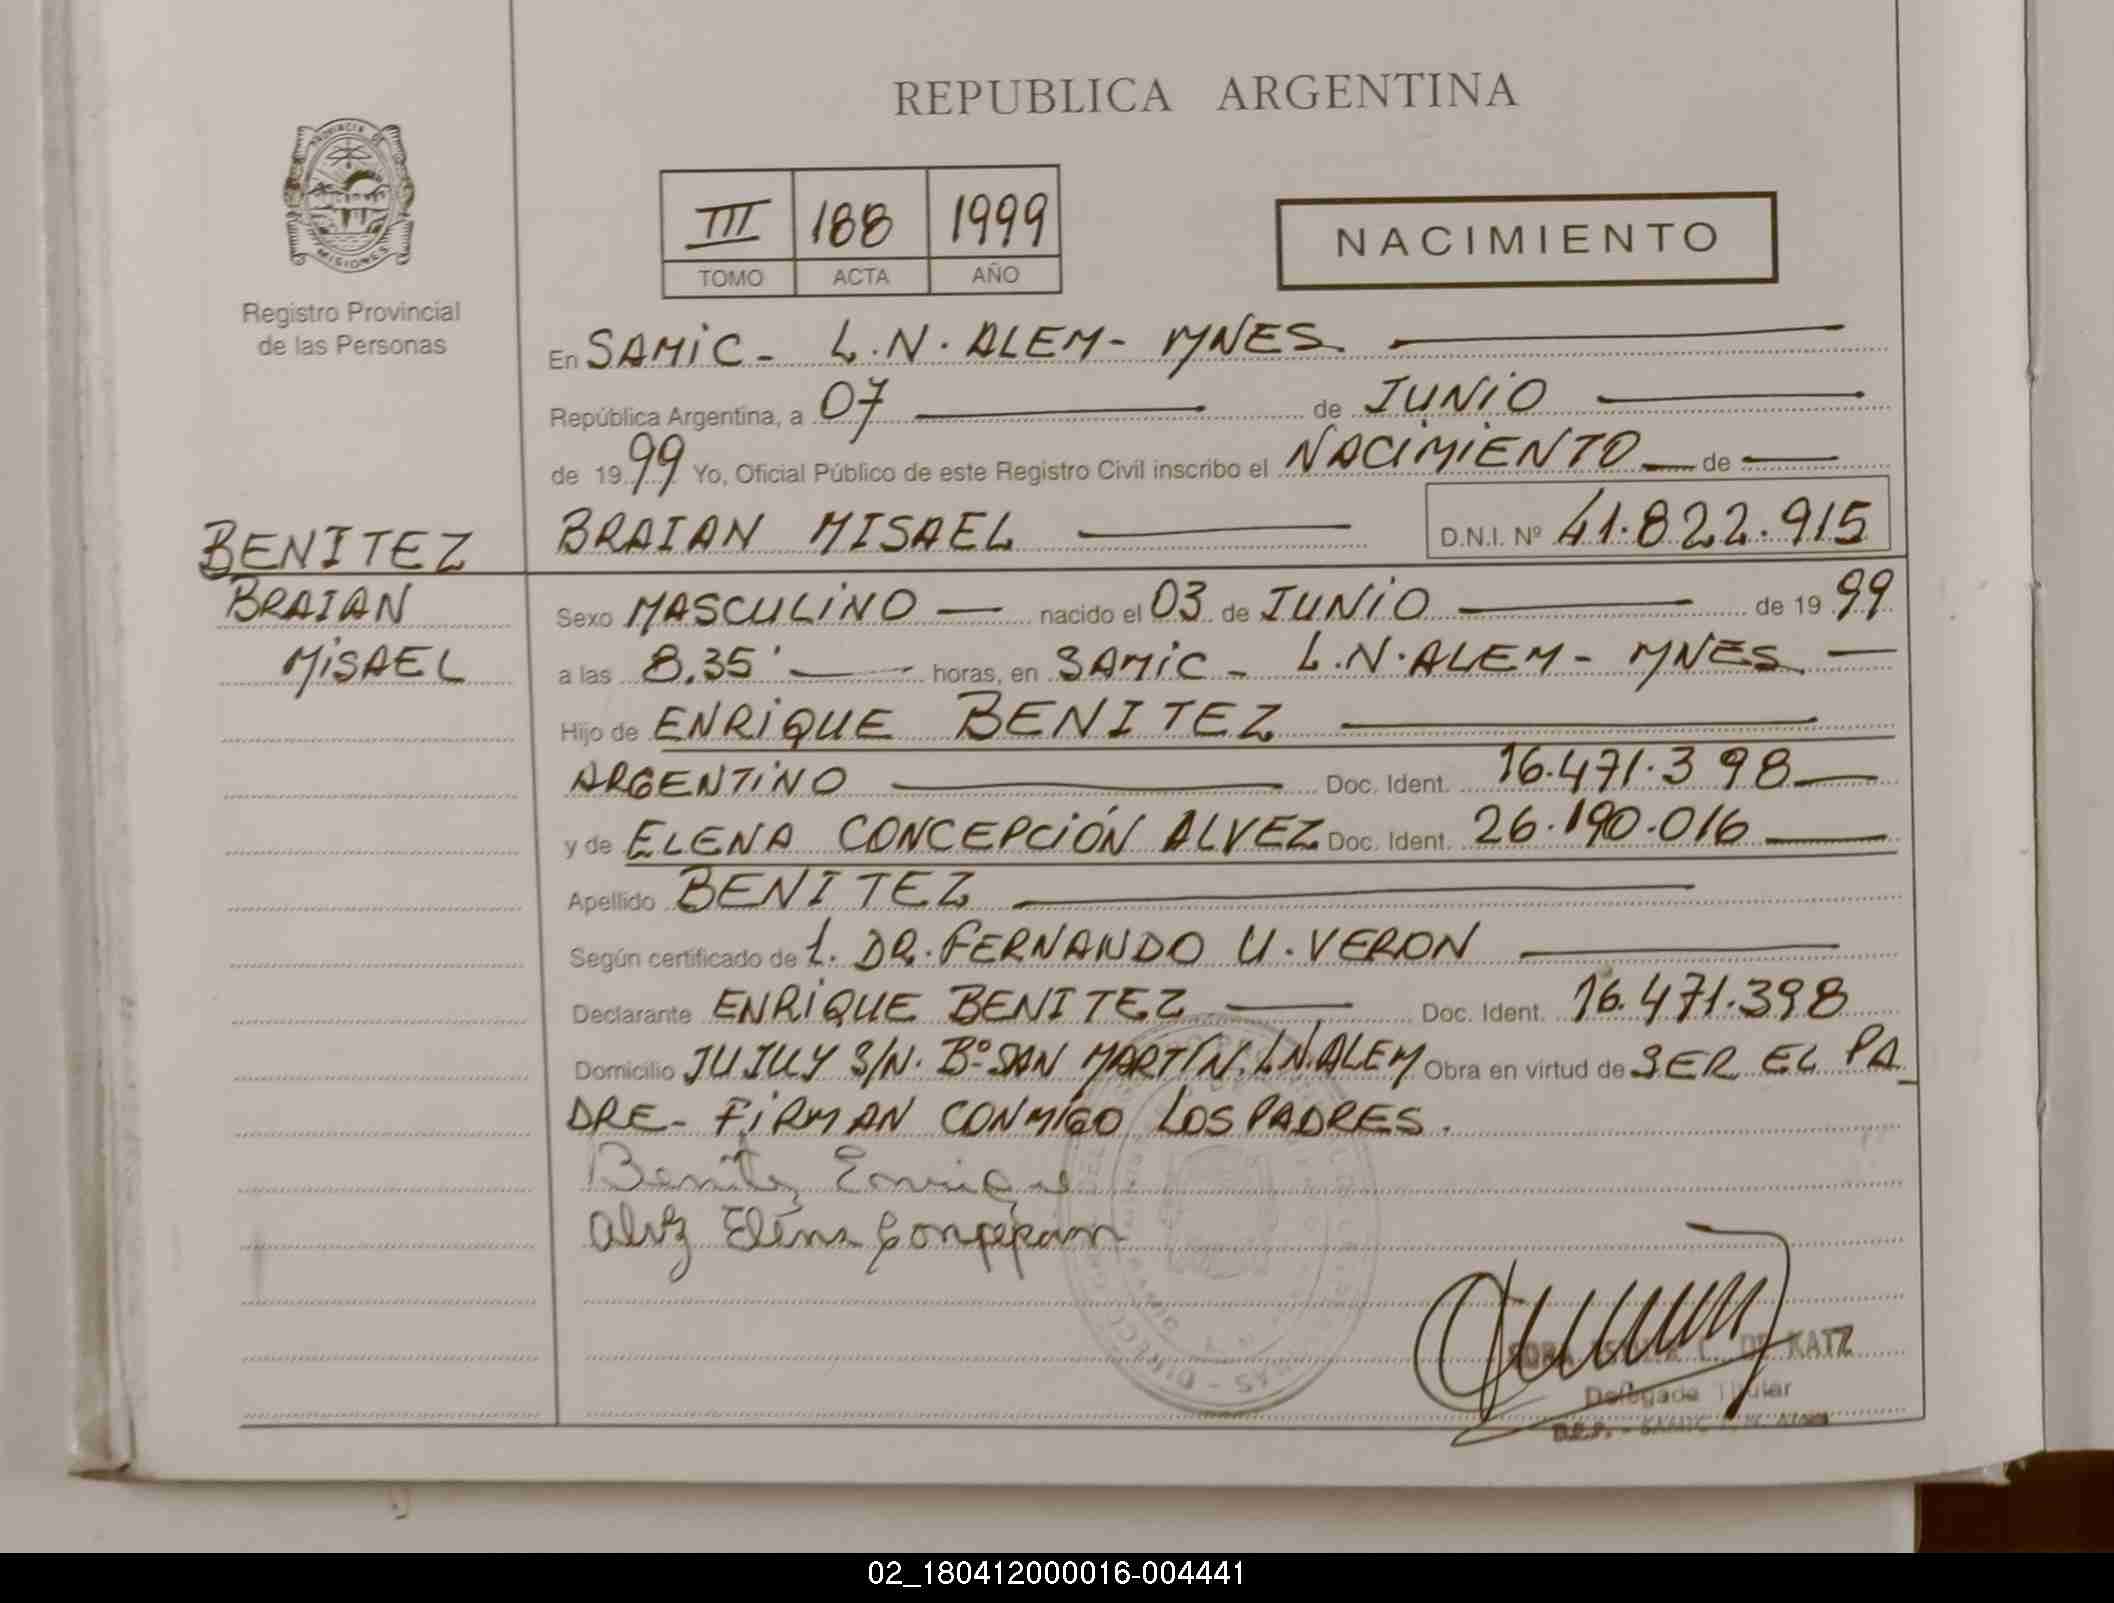 REPUBLICA ARGENTINA
PROVINCIA DE
MISIONES
Registro Provincial
de las Personas
III 188 1999
TOMO ACTA AÑO
NACIMIENTO
En SAMIC - L.N. ALEM - MNES.
República Argentina, a 07 de JUNIO
de 1999 Yo, Oficial Público de este Registro Civil inscribo el NACIMIENTO de
BRAIAN MISAEL D.N.I. Nº 41.822.915
BENITEZ
BRAIAN
MISAEL
Sexo MASCULINO nacido el 03 de JUNIO de 1999
a las 8.35' horas, en SAMIC - L.N. ALEM - MNES.
Hijo de ENRIQUE BENITEZ
ARGENTINO Doc. Ident. 16.471.398
y de ELENA CONCEPCIÓN ALVEZ Doc. Ident. 26.190.016
Apellido BENITEZ
Según certificado de 1. DR. FERNANDO U. VERON
Declarante ENRIQUE BENITEZ Doc. Ident. 16.471.398
Domicilio JUJUY S/N. Bº SAN MARTÍN. L.N. ALEM Obra en virtud de SER EL PA_
DRE - FIRMAN CONMIGO LOS PADRES.
Benitez Enrique
Alvez Elena Concepcion
DE KATZ
Delegada Titular
02_180412000016-004441